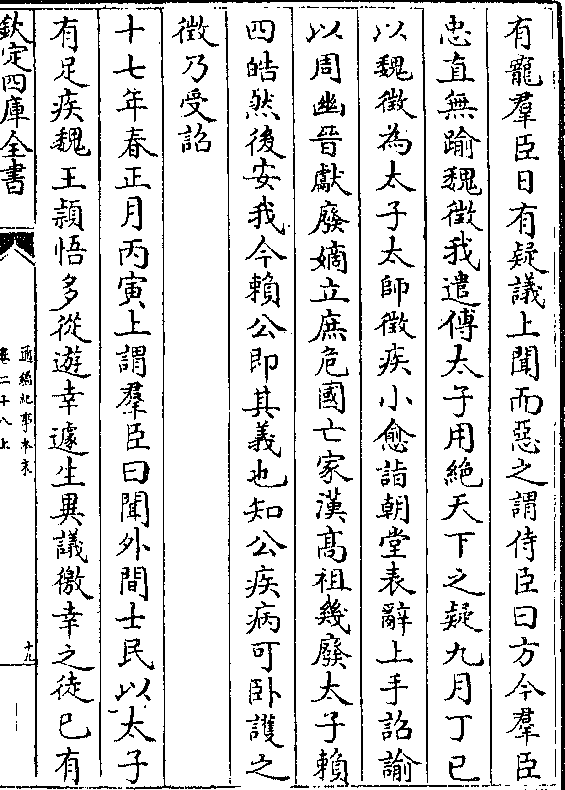 有寵羣臣日有疑議上聞而惡之謂侍臣曰方今羣臣
忠直無踰魏徵我遣傅太子用絶天下之疑九月丁巳
以魏徵為太子太師徵疾小愈詣朝堂表辭上手詔諭
以周幽晉獻廢嫡立庶危國亡家漢髙祖幾廢太子賴
四皓然後安我今賴公即其義也知公疾病可卧護之
徵乃受詔
十七年春正月丙寅上謂羣臣曰聞外間士民以太子
有足疾魏王穎悟多從遊幸遽生異議徼幸之徒已有
欽定四庫全書
通鑑紀事本末
卷二十八上
十九